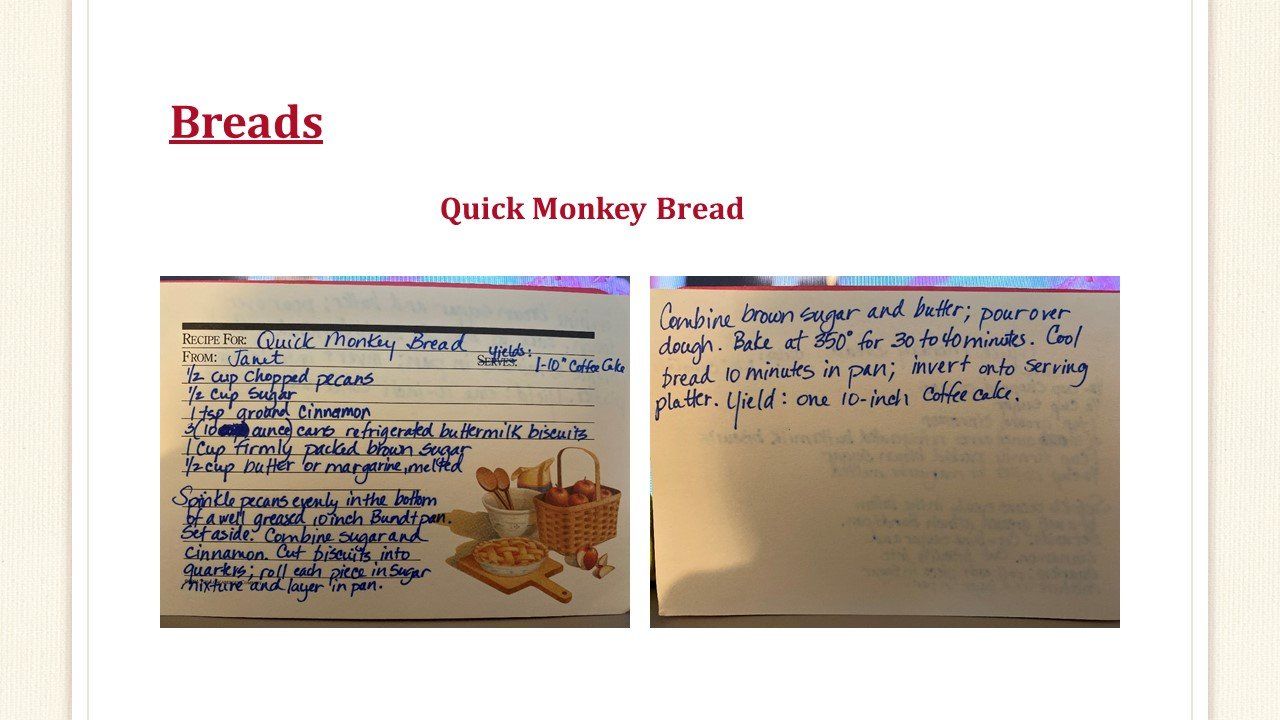 Breads
Quick Monkey Bread
RECIPE FOR: Quick Monkey Bread
FROM: Janet SERVES: Yields: 1-10" Coffee Cake
1/2 cup chopped pecans
1/2 cup sugar
1 tsp ground cinnamon
3 (10 ounce) cans refrigerated buttermilk biscuits
1 cup firmly packed brown sugar
1/2 cup butter or margarine, melted
Sprinkle pecans evenly in the bottom
of a well greased 10 inch Bundt pan.
Set aside. Combine sugar and
cinnamon. Cut biscuits into
quarters; roll each piece in sugar
mixture and layer in pan.
Combine brown sugar and butter; pour over
dough. Bake at 350° for 30 to 40 minutes. Cool
bread 10 minutes in pan; invert onto serving
platter. Yield: one 10-inch coffee cake.